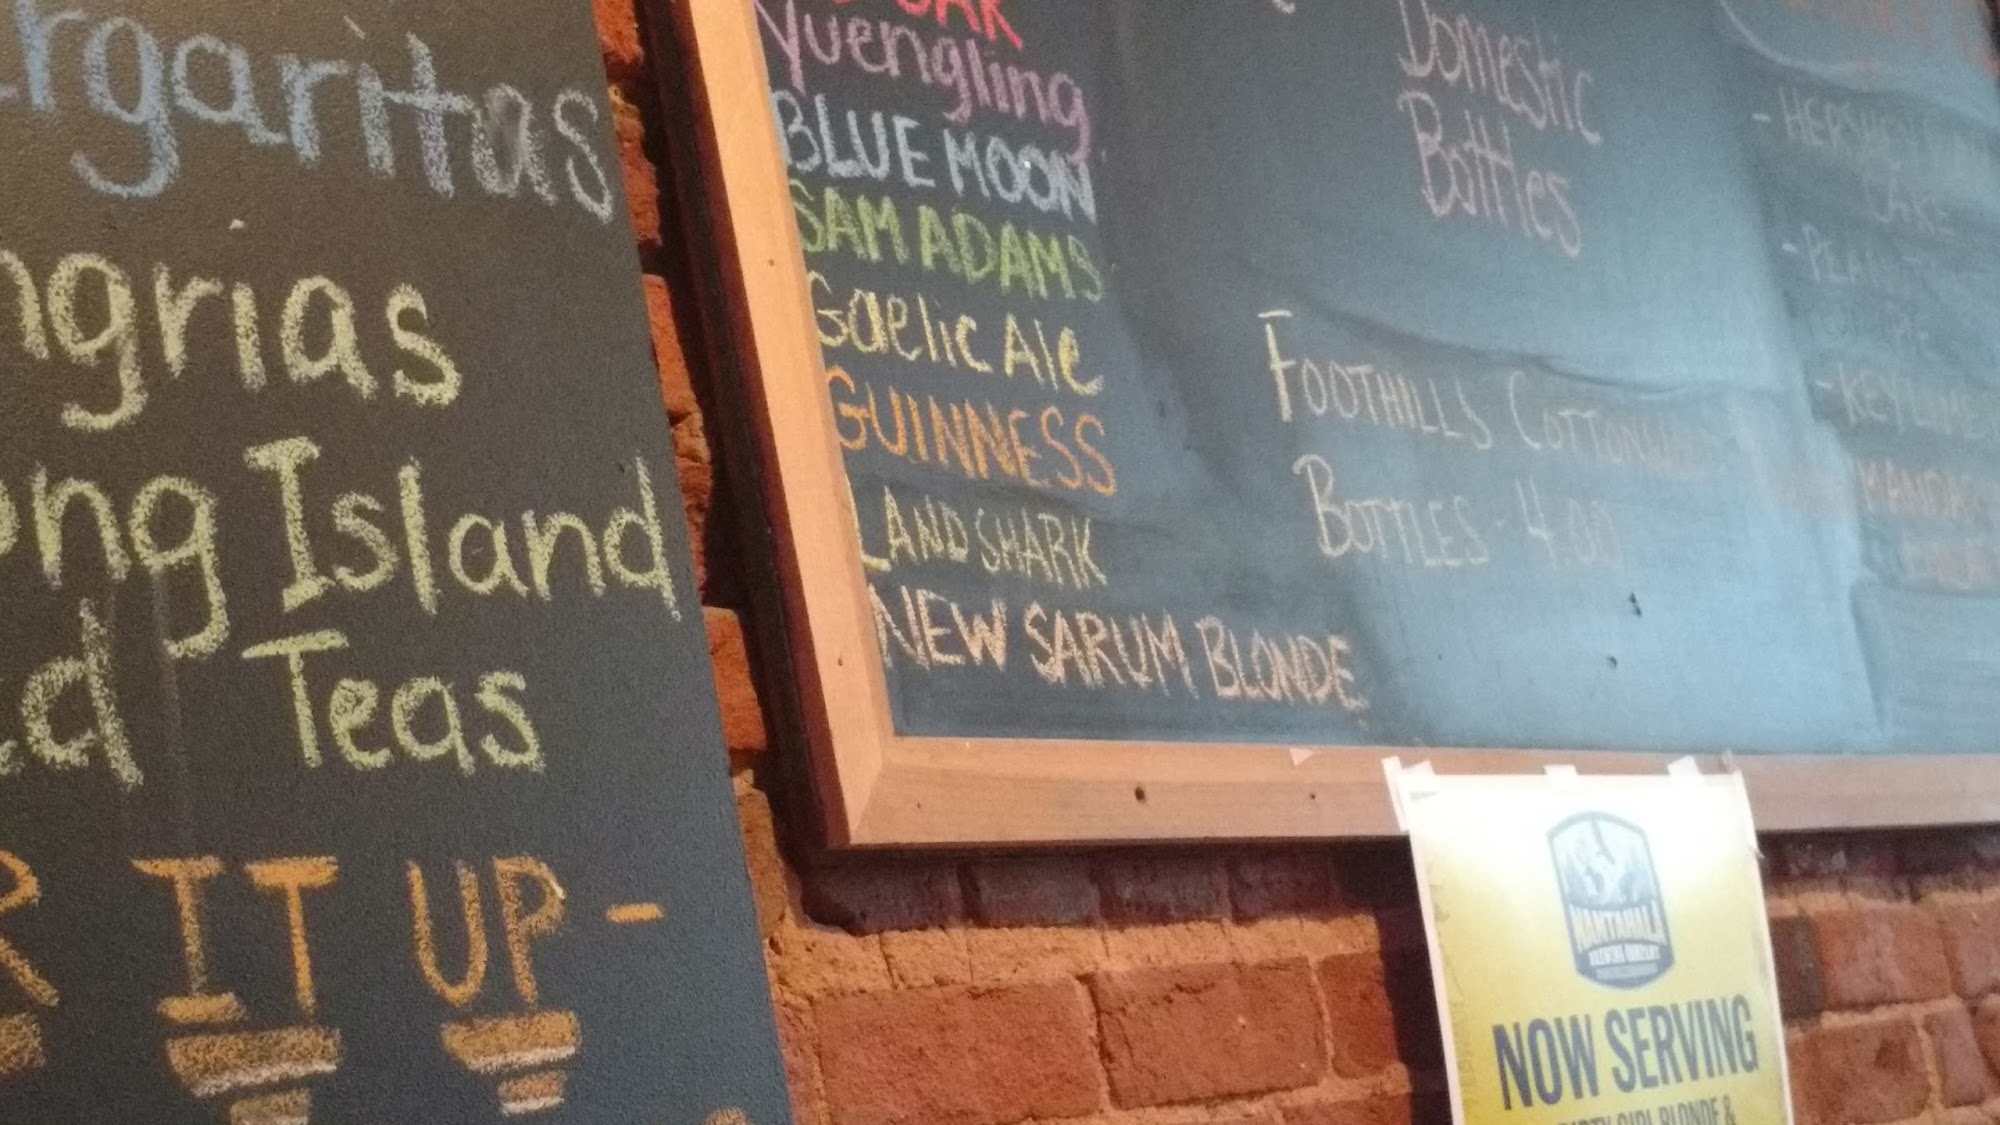 Island
Teas
IT UP -
Yuengling
BLUE MOON
SAM ADAMS
Gaelic Ale
GUINNESS
LAND SHARK
NEW SARUM BLONDE
Domestic
Bottles
FOOTHILLS COTTONWOOD
BOTTLES - 4.00
- HERSHEY
CAKE
-
PIE
- KEY LIME
NANTAHALA
BREWING COMPANY
NOW SERVING
DIRTY GIRL BLONDE &